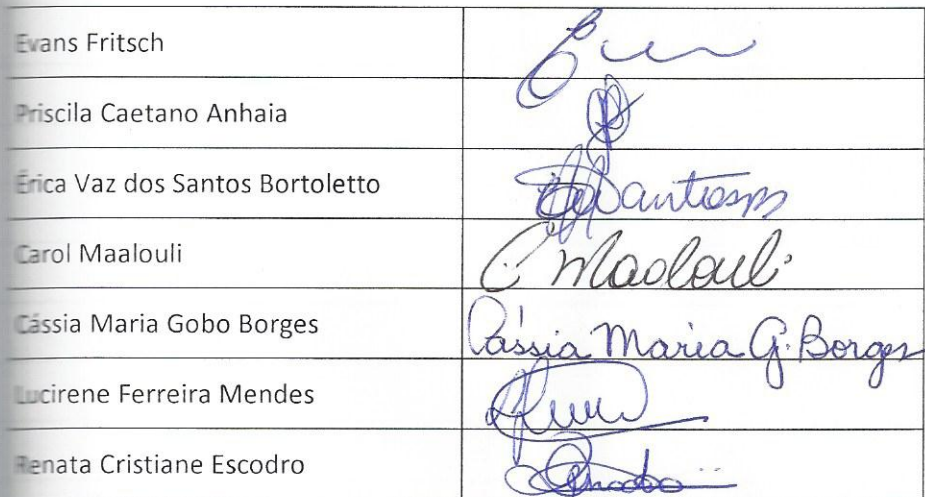 Evans Fritsch
Priscila Caetano Anhaia
Érica Vaz dos Santos Bortoletto
Carol Maalouli
C. Maalouli
Cássia Maria Gobo Borges
Cássia Maria G. Borges
Lucirene Ferreira Mendes
Renata Cristiane Escodro